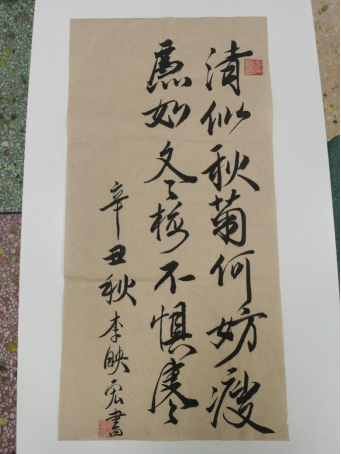 清似秋菊何妨瘦
廉如冬梅不惧寒
辛丑秋李映宏書